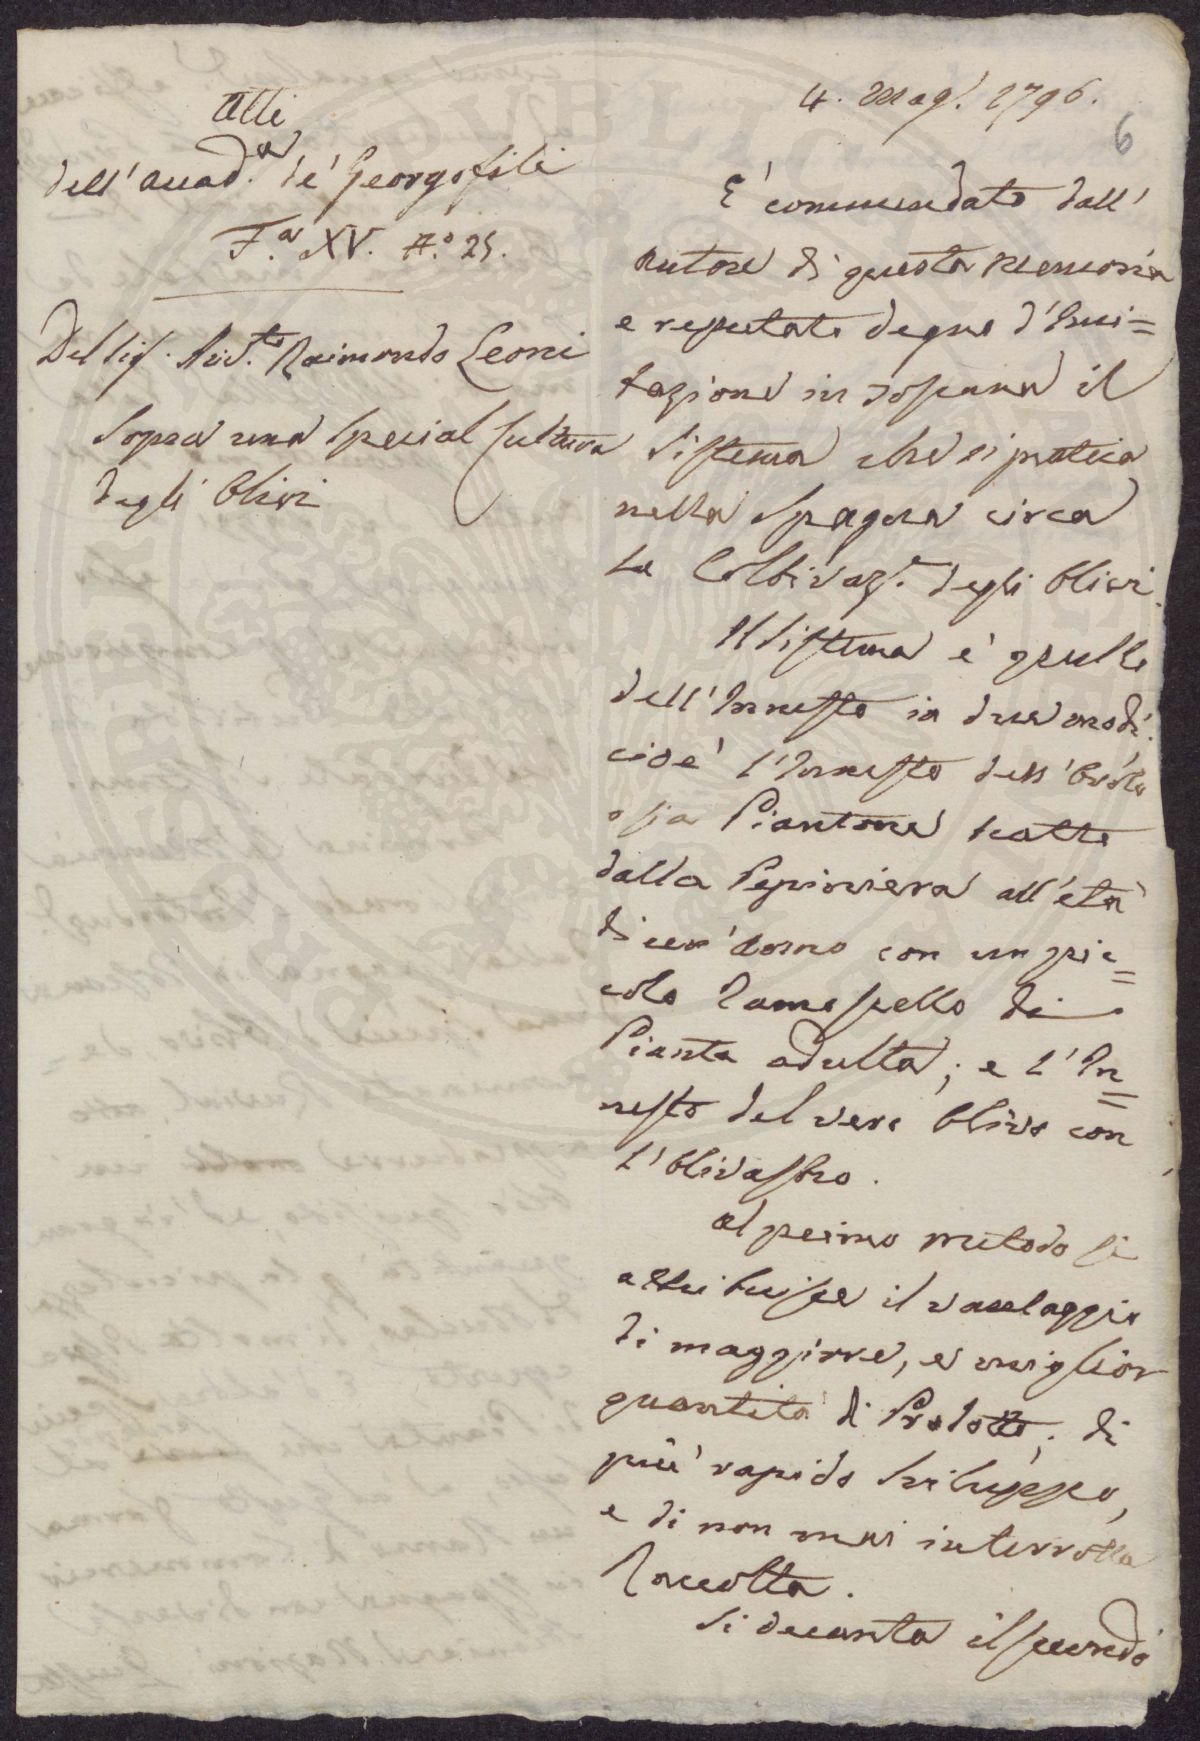 4. Mag. 1796.
6
Atti
dell' Accad.a de' Georgofili
F.a XV. N.o 25.
Del Sig. Raimondo Leoni
Sopra una special Cultura
degli Olivi
E' commendato dall'
Autore di questa Memoria
e reputato degno d'Imi=
tazione in Toscana il
Sistema che si pratica
nella Spagna circa
la Coltivaz.e degli Olivi.
Il Sistema e' quello
dell'Innesto in due modi:
cioe' l'Innesto dell'
o sia Piantone tratto
dalla Pepiniera all'età
di un' Anno con un pic=
colo Ramoscello di
Pianta adulta; e l'In=
nesto del vero Olivo con
l'Olivastro.
Al primo metodo si
attribuisce il vantaggio
di maggiore, e miglior
quantità di Prodotto; di
più rapido Sviluppo,
e di non mai interrotta
Raccolta.
Si decanta il secondo